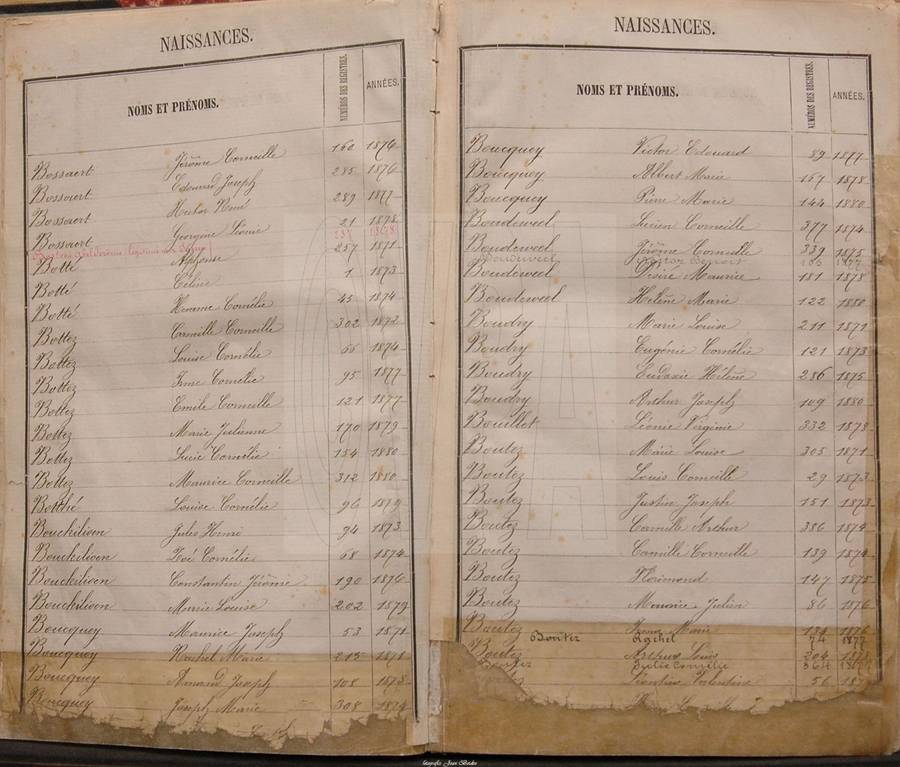 NAISSANCES.
NOMS ET PRÉNOMS. NUMÉROS DES REGISTRES. ANNÉES.
Bossaert Jérôme Corneille 160 1876
Bossaert Edouard Joseph 285 1876
Bossaert Hector René 289 1877
Bossaert Georgine Léonie 21 1878
257 1878
Botte Alphonse 257 1871
Botté Céline 1 1873
Botté Corneille 45 1874
Bottez Camille Corneille 302 1872
Bottez Louise Cornélie 66 1874
Bottez Irma Cornélie 95 1877
Bottez Emile Corneille 121 1877
Bottez Marie Julienne 170 1879
Bottez Lucie Cornélie 154 1880
Bottez Maurice Corneille 312 1880
Botthé Louise Cornélie 96 1879
Bouckilioen Jules Henri 94 1873
Bouckilioen Zoé Cornélie 68 1874
Bouckilioen Constantin Jérôme 190 1876
Bouckilioen Marie Louise 202 1879
Boucquey Maurice Joseph 53 1871
Boucquey Rachel Marie 213 1871
Boucquey Amand Joseph 108 1873
Boucquey Joseph Marie 308 1874
NAISSANCES.
NOMS ET PRÉNOMS. NUMÉROS DES REGISTRES. ANNÉES.
Boucquey Victor Edouard 89 1877
Boucquey Albert Marie 167 1878
Boucquey Pierre Marie 144 1880
Boudeweel Lucien Corneille 377 1874
Boudeweel Jérôme Corneille 339 1875
Boudeweel 1877
Boudeweel Désiré Maurice 181 1878
Boudeweel Hélène Marie 122 1880
Boudry Marie Louise 211 1871
Boudry Eugénie Cornélie 121 1873
Boudry Eudoxie Hélène 286 1875
Boudry Arthur Joseph 109 1880
Bouillet Léonie Virginie 332 1878
Boutez Marie Louise 305 1871
Boutez Louis Corneille 29 1873
Boutez Justin Joseph 151 1873
Boutez Camille Arthur 386 1874
Boutez Camille Corneille 139 1874
Boutez Florimond 147 1875
Boutez Maurice Julien 86 1876
Boutez Marie 134 1876
Boutez Rachel 74 1877
Boutez Arthur Louis 204
Cornélie
Valentine 56
fotografie Joan Bodin